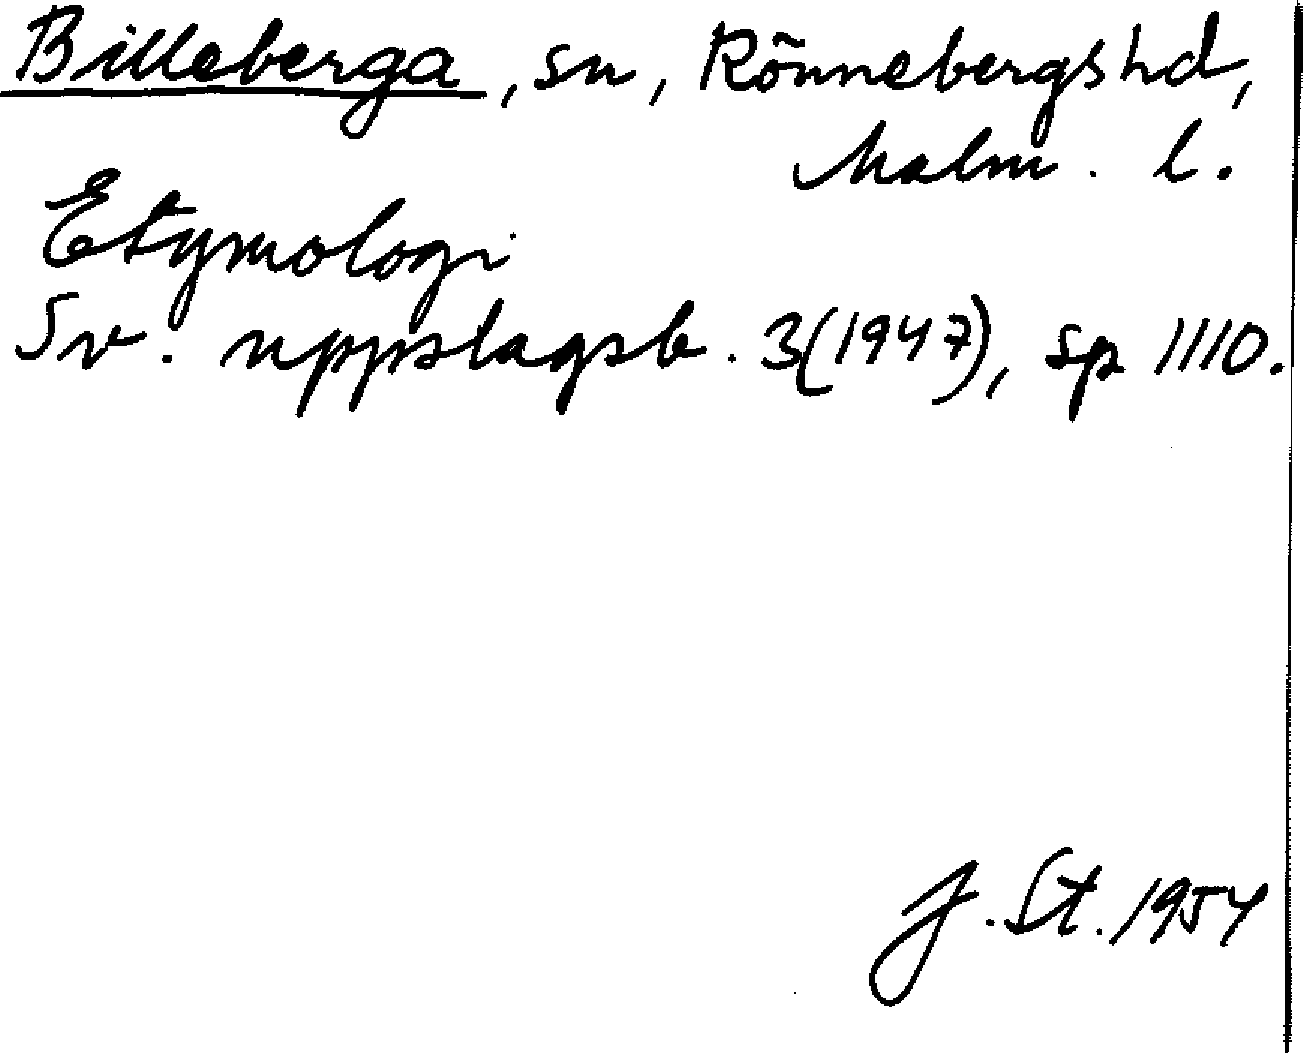 Billeberga, sn, Rönnebergs hd,
Malm. l.
Etymologi
Sv. uppslagsb. 3(1947), sp 1110.
J. St. 1954